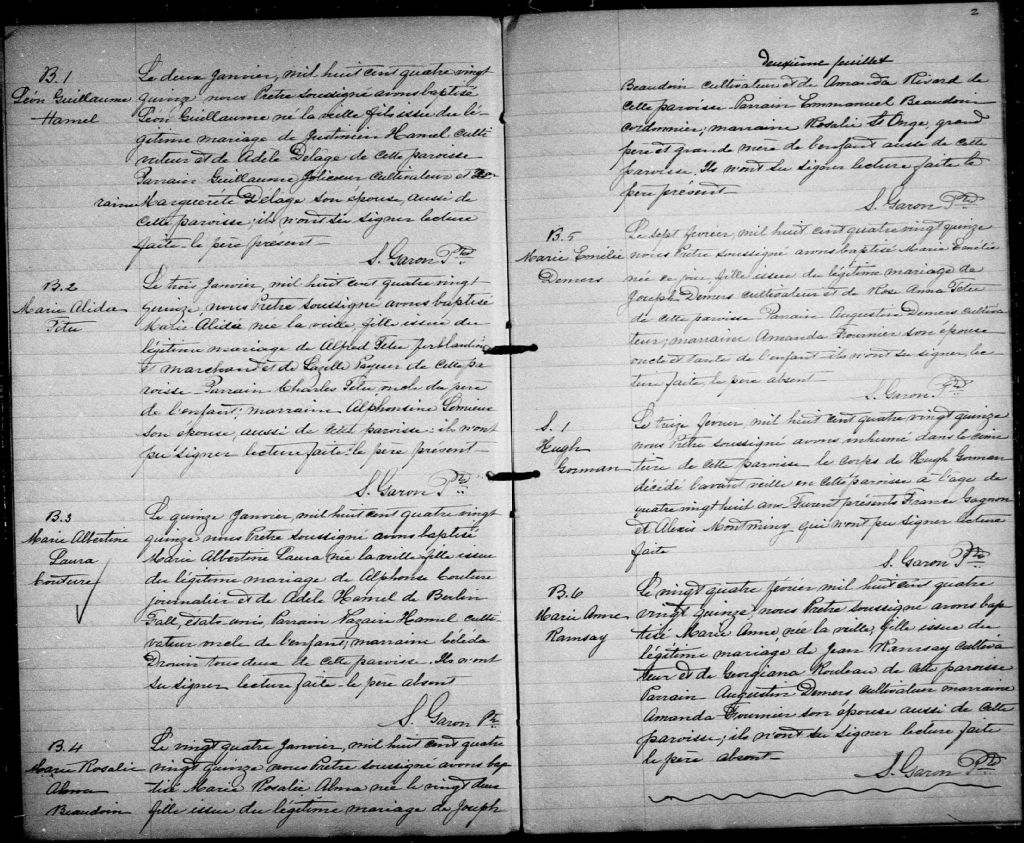 B.1
Léon Guillaume
Hamel
Le deux Janvier, mil huit cent quatre vingt
quinze nous Prêtre soussigné avons baptisé
Léon Guillaume né la veille fils issu du lé
gitime mariage de Justinien Hamel culti
vateur et de Adèle Délage de cette paroisse
Parrain Guillaume Jolicoeur cultivateur et Mar
raine Marguerite Délage son épouse, aussi de
cette paroisse; ils n'ont su signer lecture
faite. le père présent
S. Garon Ptre
B.2
Marie Alida
Fétu
Le trois Janvier, mil huit cent quatre vingt
quinze, nous Prêtre soussigné avons baptisé
Marie Alida née la veille, fille issue du
légitime mariage de Alfred Fétu ferblantier
et marchand et de Payeur de cette pa
roisse Parrain Charles Fétu oncle du père
de l'enfant; marraine Alphonsine Lemieux
son épouse, aussi de cette paroisse; ils n'ont
pu signer lecture faite. le père présent
S. Garon Ptre
B.3
Marie Albertine
Laura
Couture
Le quinze Janvier, mil huit cent quatre vingt
quinze nous Prêtre soussigné avons baptisé
Marie Albertine Laura née la veille fille issue
du légitime mariage de Alphonse Couture
journalier et de Adèle Hamel de Berlin
Fall, états unis, Parrain Nazaire Hamel culti
vateur oncle de l'enfant; marraine Céléda
Drouin tous deux de cette paroisse. Ils n'ont
su signer lecture faite. le père absent
S. Garon Ptr
B.4
Marie Rosalie
Alma
Beaudoin
Le vingt quatre Janvier, mil huit cent quatre
vingt quinze nous Prêtre soussigné avons bap
tisé Marie Rosalie Alma née le vingt deux
fille issue du légitime mariage de Joseph
2
Deuxième feuillet
Beaudoin cultivateur et de Amanda Risard de
cette paroisse Parrain Emmanuel Beaudoin
cordonnier; marraine Rosalie St Onge, grand
père et grande mère de l'enfant aussi de cette
paroisse. Ils n'ont su signer lecture faite le
père présent
S. Garon Ptre
B.5
Marie Emélie
Demers
Le sept février, mil huit cent quatre vingt quinze
nous Prêtre soussigné avons baptisé Marie Emélie
née ce jour fille issue du légitime mariage de
Joseph Demers cultivateur et de Rose Anna Fétu
de cette paroisse Parrain Augustin Demers cultiva
teur; marraine Amanda Fournier son épouse
oncle et tante de l'enfant ils n'ont su signer, lec
ture faite, le père absent
S. Garon Ptre
S. 1
Hugh
Gorman
Le treize février, mil huit cent quatre vingt quinze
nous Prêtre soussigné avons inhumé dans le cime
tière de cette paroisse le corps de Hugh Gorman
décédé l'avant veille en cette paroisse à l'age de
quatre vingt huit ans Furent présents France Gagnon
et Alexis Montminy qui n'ont pu signer lecture
faite
S. Garon Ptre
B.6
Marie Anne
Ramsay
Le vingt quatre février mil huit cent quatre
vingt quinze, nous Prêtre soussigné avons bap
tisé Marie Anne, née la veille, fille issue du
légitime mariage de Jean Ramsay cultiva
teur et de Georgiana Rouleau de cette paroisse
Parrain Augustin Demers cultivateur marraine
Amanda Fournier son épouse aussi de cette
paroisse; ils n'ont su signer lecture faite
le père absent
S. Garon Ptre